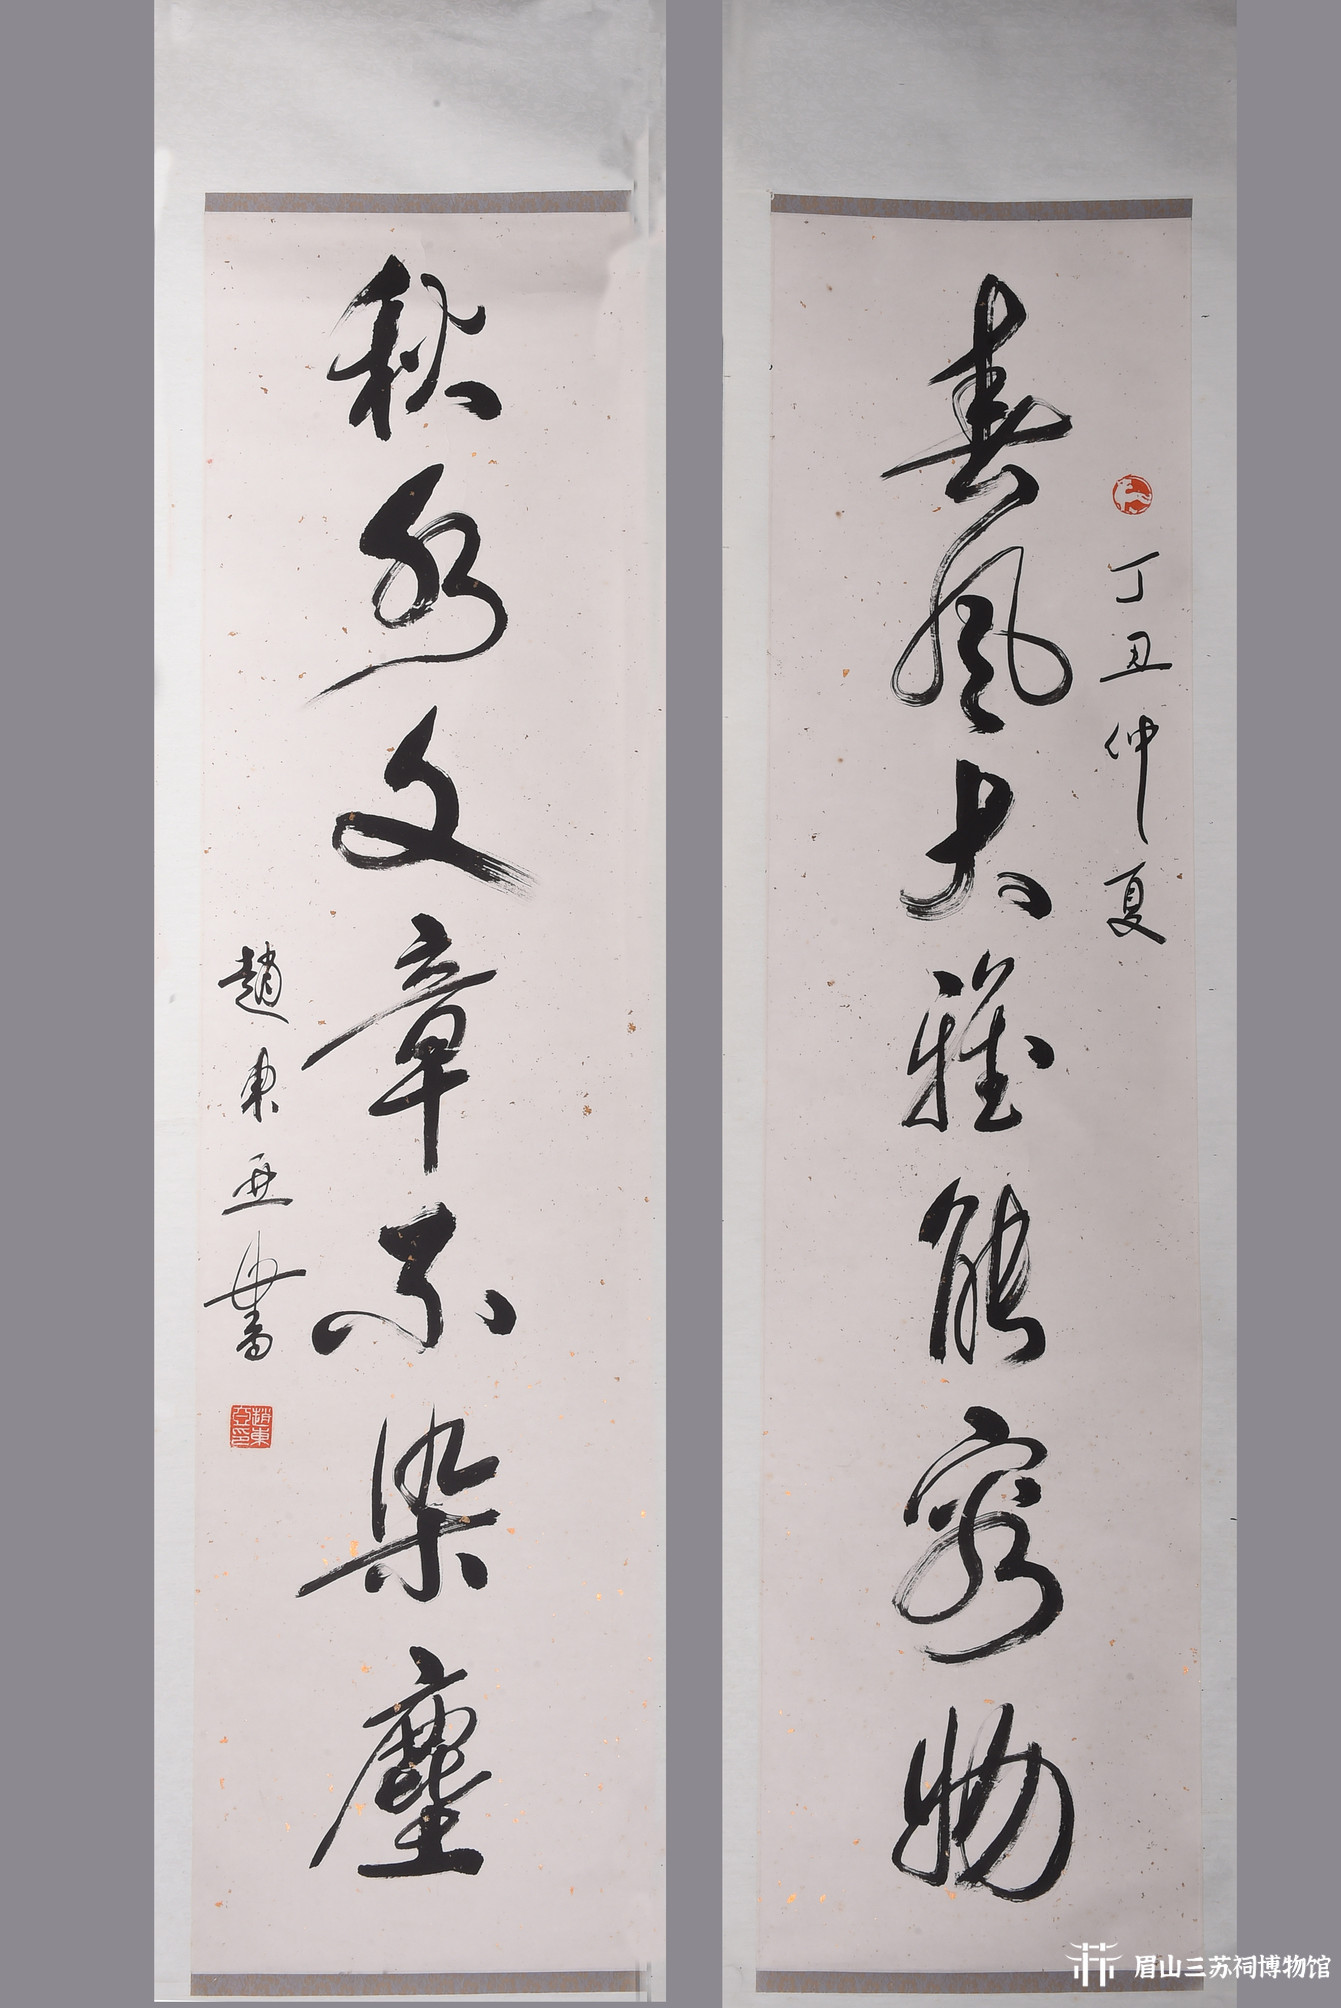 丁丑仲夏
春风大雅能容物
秋水文章不染尘
趙東亚書
趙東亞印
眉山三苏祠博物馆